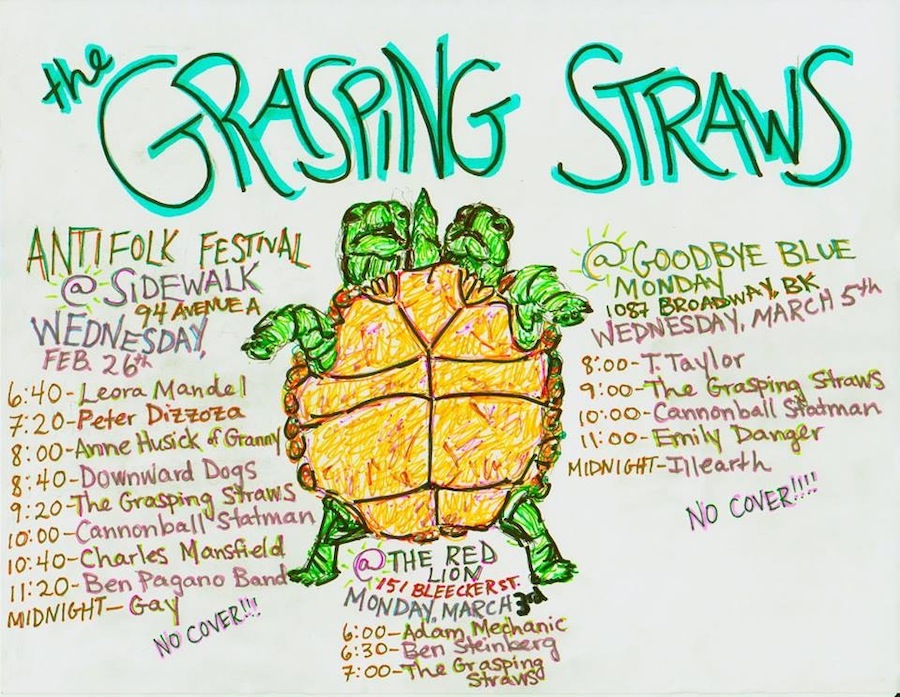 the GRASPING STRAWS
ANTIFOLK FESTIVAL
@ SIDEWALK
94 AVENUE A
WEDNESDAY,
FEB. 26th
6:40-Leora Mandel
7:20-Peter Dizzoza
8:00-Anne Husick of Granny
8:40-Downward Dogs
9:20-The Grasping Straws
10:00-Cannonball Statman
10:40-Charles Mansfield
11:20-Ben Pagano Band
MIDNIGHT-Gay
NO COVER!!!
@ THE RED
LION
151 BLEECKER ST.
MONDAY, MARCH 3rd
6:00-Adam Mechanic
6:30-Ben Steinberg
7:00-The Grasping
Straws
@ GOODBYE BLUE
MONDAY
1087 BROADWAY, BK
WEDNESDAY, MARCH 5th
8:00-T. Taylor
9:00-The Grasping Straws
10:00-Cannonball Statman
11:00-Emily Danger
MIDNIGHT-Illearth
NO COVER!!!!